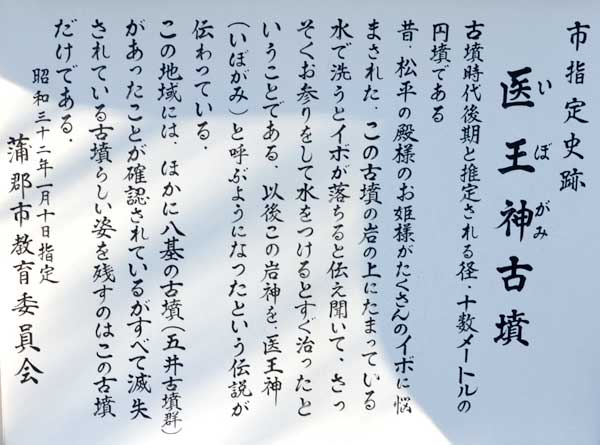 市指定史跡
医王神古墳
いぼがみ
古墳時代後期と推定される径・十数メートルの
円墳である
昔、松平の殿様のお姫様がたくさんのイボに悩
まされた.この古墳の岩の上にたまっている
水で洗うとイボが落ちると伝え聞いて、さっ
そくお参りをして水をつけるとすぐ治ったと
いうことである、以後この岩神を、医王神
(いぼがみ)と呼ぶようになったという伝説が
伝わっている.
この地域には、ほかに八基の古墳(五井古墳群)
があったことが確認されているがすべて滅失
されている古墳らしい姿を残すのはこの古墳
だけである.
昭和三十二年一月十日指定
蒲郡市教育委員会